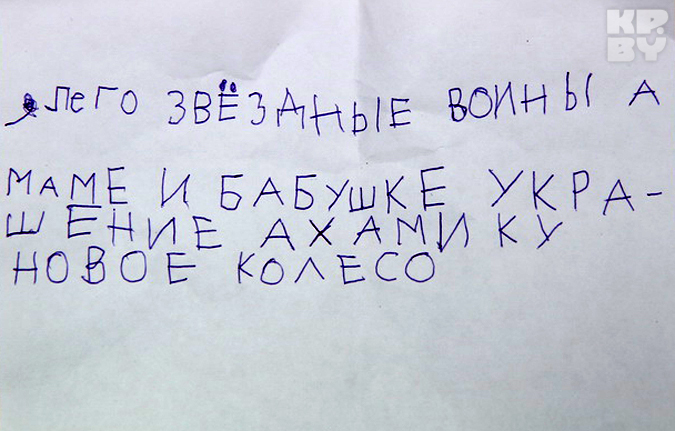 KP.
BY
лего ЗВЁЗДНЫЕ ВОИНЫ А
МАМЕ И БАБУШКЕ УКРА-
ШЕНИЕ АХАМИКУ
НОВОЕ КОЛЕСО